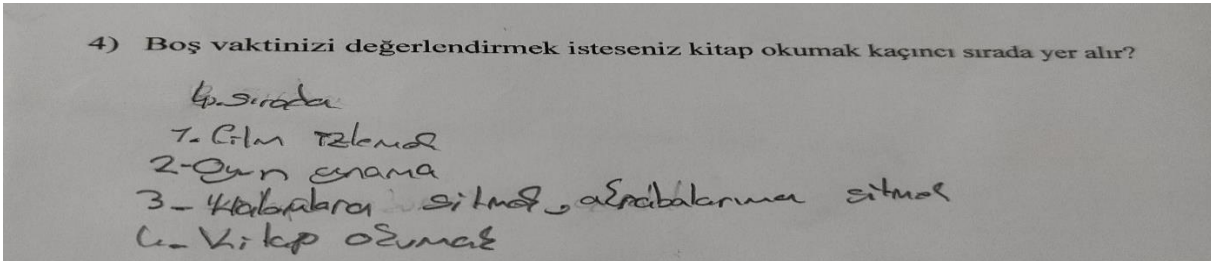 4) Boş vaktinizi değerlendirmek isteseniz kitap okumak kaçıncı sırada yer alır?
4. sırada
1. Film izlemek
2-Oyun
3- gitmek, akrabalarıma gitmek
4- Kitap okumak